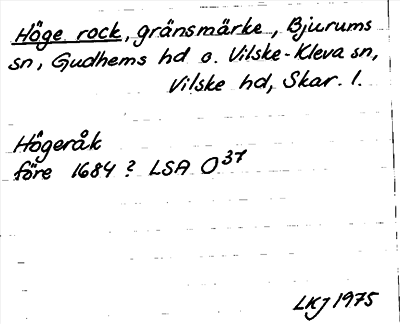 Höge rock, gränsmärke, Bjurums
sn, Gudhems hd o. Vilske-Kleva sn,
Vilske hd, Skar. l.
Högeråk
före 1684? LSA O37
LKJ 1975